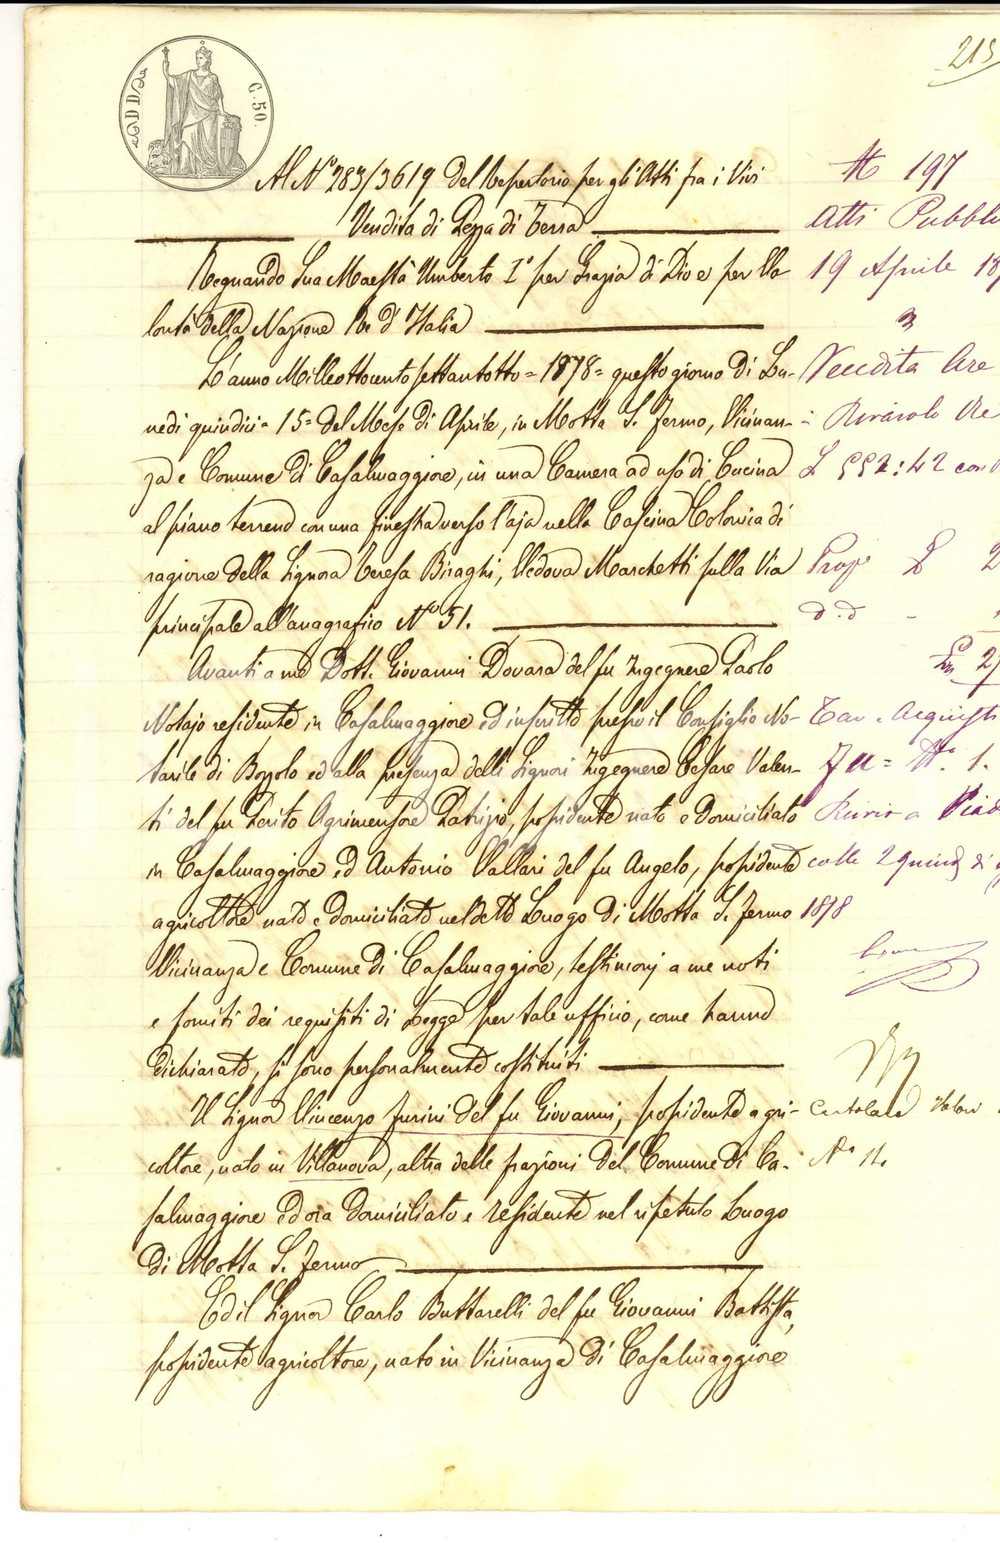 215
C. 50.
Al N° 283/3619 del Repertorio per gli Atti fra i Vivi
Vendita di Pezza di Terra
Regnando Sua Maestà Umberto I° per Grazia di Dio e per Vo-
lontà della Nazione Re d'Italia
L'anno Milleottocento settantotto = 1878 = questo giorno di Lu-
nedi quindici = 15 = del Mese di Aprile, in Motta S. Fermo, Vicinan-
za e Comune di Casalmaggiore, in una Camera ad uso di Cucina
al piano terreno con una finestra verso l'aja nella Cascina Colonica di
ragione della Signora Teresa Biraghi, Vedova Marchetti sulla Via
principale all'anagrafico N° 51.
Avanti a me Dott. Giovanni Dovara del fu Ingegnere Paolo
Notajo residente in Casalmaggiore ed inscritto presso il Consiglio No-
tarile di Bozzolo ed alla presenza delli Signori Ingegnere Cesare Valen-
ti del fu Perito Agrimensore Patrizio, possidente nato e domiciliato
in Casalmaggiore ed Antonio Vallari del fu Angelo, possidente
agricoltore nato e domiciliato nel detto Luogo di Motta S. Fermo
Vicinanza e Comune di Casalmaggiore, testimonj a me noti
e forniti dei requisiti di Legge per tale ufficio, come hanno
dichiarato, si sono personalmente costituiti
Il Signor Vincenzo Furini del fu Giovanni, possidente agri-
coltore, nato in Villanova, altra delle frazioni del Comune di Ca-
salmaggiore ed ora domiciliato e residente nel ripetuto Luogo
di Motta S. Fermo
Ed il Signor Carlo Buttarelli del fu Giovanni Battista,
possidente agricoltore, nato in Vicinanza di Casalmaggiore
N 197
Atti Pubbl
19 Aprile 18
3
Vendita
Rivarolo
L 552:42 con
Prop L 2
d.d
N° 1.
colle 2
1878
N° 11.